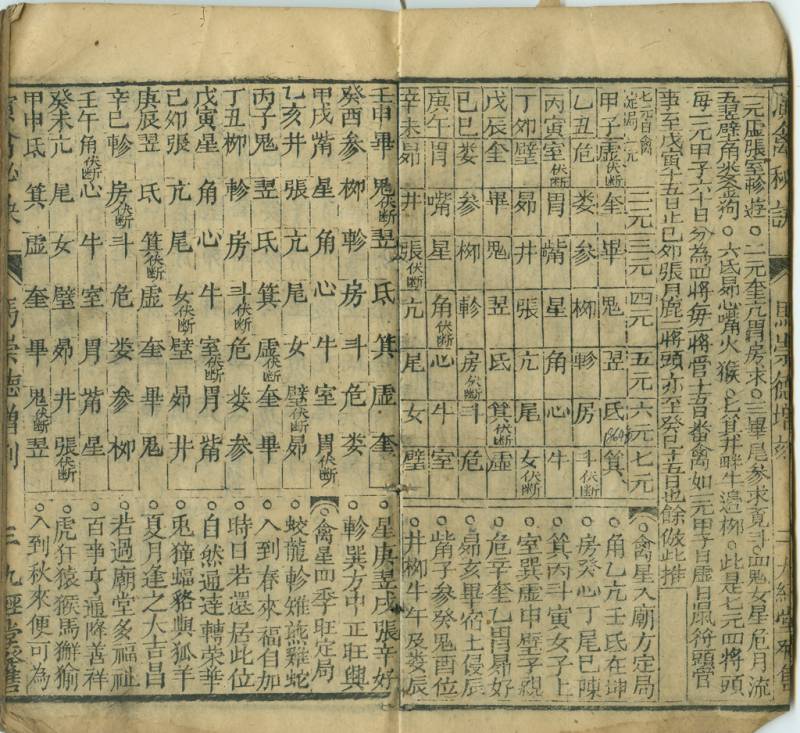 演禽秘訣 馬崇德增刻 三 九經堂發售
一元虛張室軫遊○二元奎亢胃房求○三畢尾參求竟斗○四鬼女星危月流
五翌壁角婁金狗○六氐昴心觜火猴○七箕井畔牛邊栁○此是七元四將頭
每一元甲子六十日分為四將每一將管十五日番禽如一元甲子日虛日鼠符頭管
事至戊寅十五日止巳卯張月鹿二將頭亦至癸巳十五日也餘倣此推
七元日禽定局 一元 二元 三元 四元 五元 六元 七元
甲子 虛伏斷 奎 畢 鬼 翌 氐 箕
乙丑 危 婁 參 栁 軫 房 斗伏斷
丙寅 室伏斷 胃 觜 星 角 心 牛
丁卯 壁 昴 井 張 亢 尾 女伏斷
戊辰 奎 畢 鬼 翌 氐 箕伏斷 虛
己巳 婁 參 栁 軫 房伏斷 斗 危
庚午 胃 觜 星 角伏斷 心 牛 室
辛未 昴 井 張伏斷 亢 尾 女 壁
○禽星入廟方定局
○角乙亢壬氐在坤
○房癸心丁尾巳陳
○箕丙斗寅女子上
○室巽虛申壁子親
○危辛奎乙胃昴好
○昴亥畢宿土侵辰
○觜子參癸鬼酉位
○井柳牛午及婁辰
壬申 畢 鬼伏斷 翌 氐 箕 虛 奎
癸酉 參 栁 軫 房 斗 危 婁
甲戌 觜 星 角 心 牛 室 胃伏斷
乙亥 井 張 亢 尾 女 壁伏斷 昴
丙子 鬼 翌 氐 箕 虛伏斷 奎 畢
丁丑 栁 軫 房 斗伏斷 危 婁 參
戊寅 星 角 心 牛 室伏斷 胃 觜
己卯 張 亢 尾 女伏斷 壁 昴 井
庚辰 翌 氐 箕伏斷 虛 奎 畢 鬼
辛巳 軫 房伏斷 斗 危 婁 參 栁
壬午 角伏斷 心 牛 室 胃 觜 星
癸未 亢 尾 女 壁 昴 井 張伏斷
甲申 氐 箕 虛 奎 畢 鬼伏斷 翌
○星庚翌戌張辛好
○軫巽方中正旺興
○禽星四季旺定局
○蛟龍軫雉燕雞蛇
○入到春來福自加
○時日若還居此位
○自然通達轉榮華
○兎獐蝠貉與狐羊
○夏月逢之大吉昌
○若過廟堂多福祉
○百事亨通降善祥
○虎犴猿猴馬獬㺄
○入到秋來便可為
演禽秘訣 馬崇德增刻 三 九經堂發售